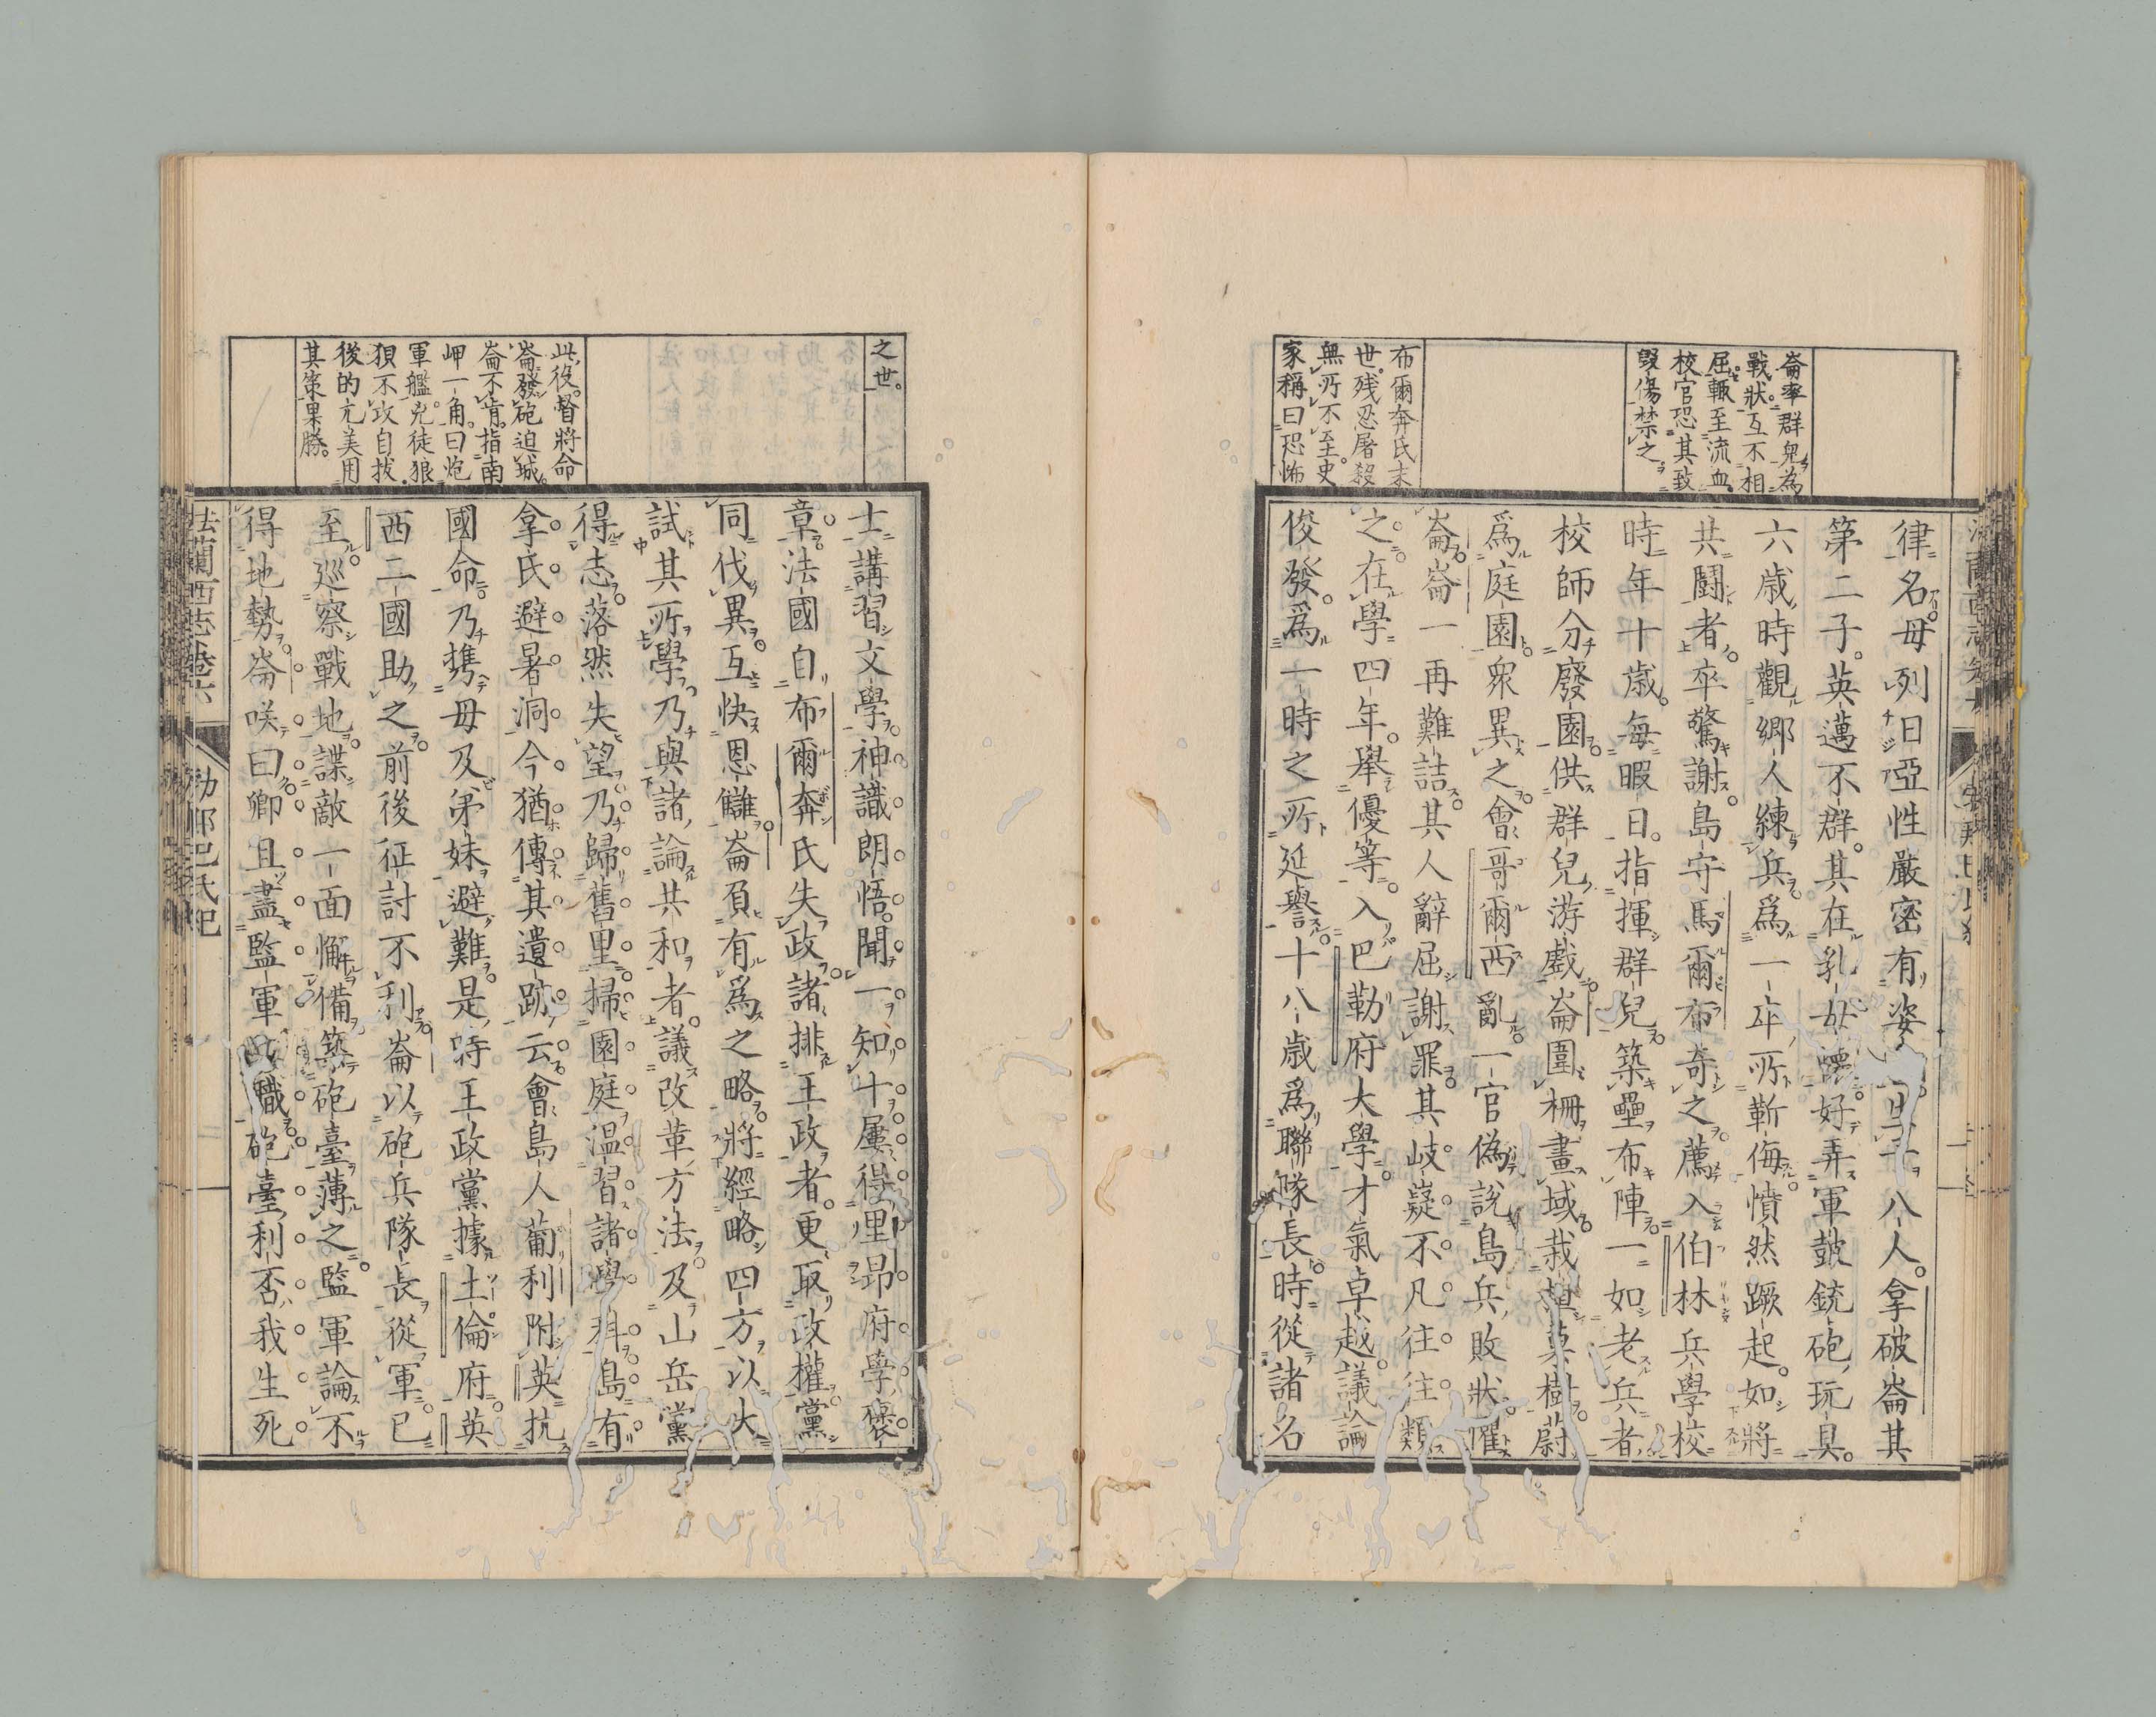 崙率群兒為
戰狀互不相
屈輙至流血
校官恐其致
毀傷禁之
布爾奔氏末
世残忍屠殺
無所不至史
家稱曰恐怖
律名母列日亞性嚴密有姿
八人拿破崙其
第二子英邁不群其在乳
好弄軍皷銃砲玩具
六歳時觀鄉人練兵爲一卒所靳侮憤然蹶起如將
共鬪者卒驚謝島守馬爾布奇之薦入伯林兵學校
時年十歳每暇日指揮群兒築壘布陣一如老兵者
校師分廢園供群兒游戲崙圍柵畫域栽植菓樹蔚
爲庭園衆異之會哥爾西亂一官偽說島兵敗狀嚾
崙崙一再難詰其人辭屈謝罪其岐嶷不凡往往類
之在學四年舉優等入巴勒府大學才氣卓越議論
俊發爲一時之所延譽十八歳爲聯隊長時從諸名
之世
此役督將命
崙發砲迫城
崙不肯指南
岬一角曰炮
軍艦克徒狼
狽不攻自拔
後的亢美用
其策果勝
士講習文學神識朗悟聞一知十屢得里昂府學褒
章法國自布爾奔氏失政諸排王政者更取政權黨
同伐異互快恩讎崙負有爲之略將經略四方以大
試其所學乃與諸論共和者議改革方法及山岳黨
得志落然失望乃歸舊里掃園庭溫習諸學科島有
拿氏避暑洞今猶傳其遺跡云會島人葡利附英抗
國命乃攜母及弟妹避難是時王政黨據土倫府英
西二國助之前後征討不利崙以砲兵隊長從軍已
至巡察戰地諜敵一面懈備築砲臺薄之監軍論不
得地勢崙咲曰卿且盡監軍
職砲臺利否我生死
法蘭西志卷六
勃那巴氏紀